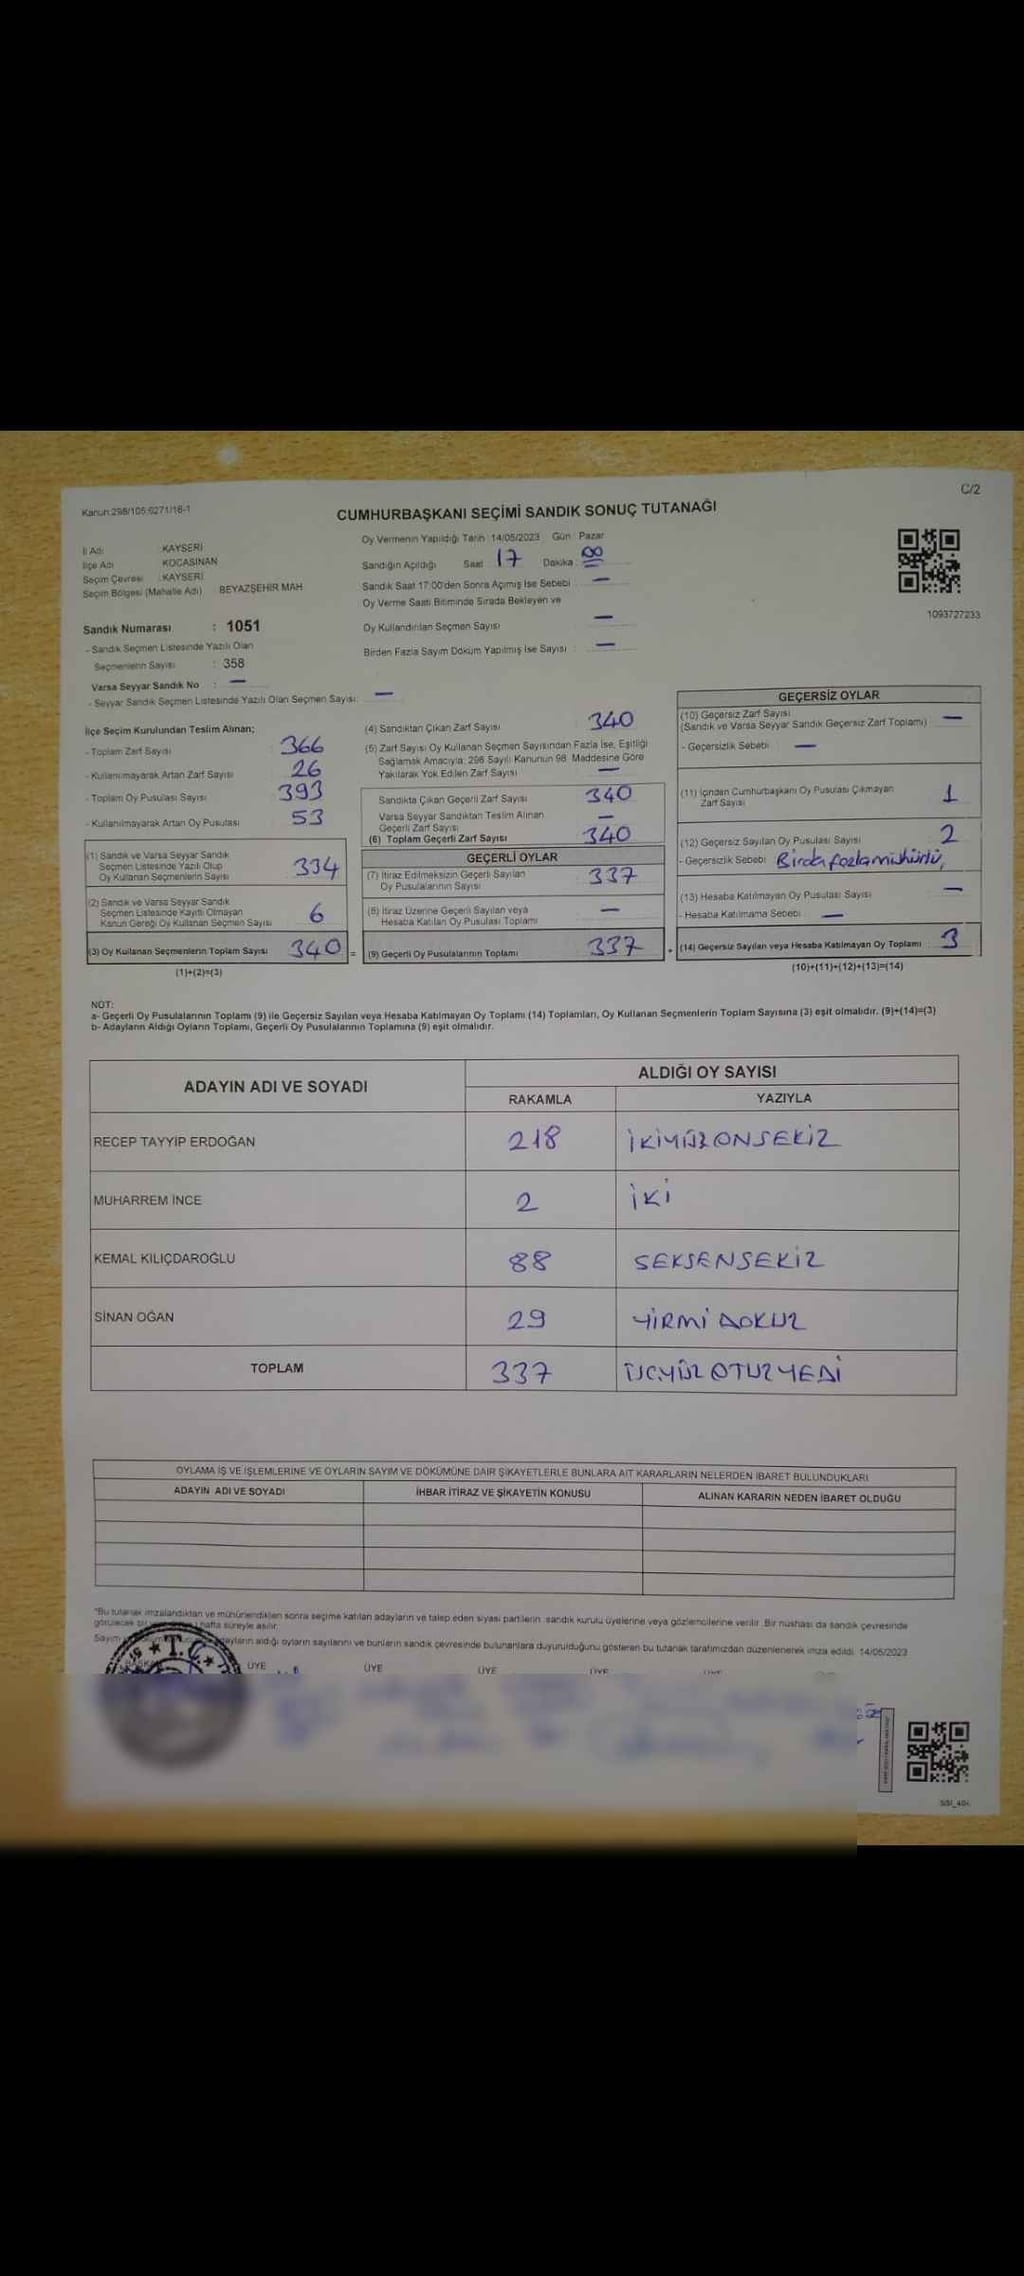 C/2
Kanun:298/105,6271/18-1
CUMHURBAŞKANI SEÇİMİ SANDIK SONUÇ TUTANAĞI
İl Adı : KAYSERİ
İlçe Adı : KOCASİNAN
Seçim Çevresi : KAYSERİ
Seçim Bölgesi (Mahalle Adı) BEYAZŞEHİR MAH
Sandık Numarası : 1051
- Sandık Seçmen Listesinde Yazılı Olan
Seçmenlerin Sayısı : 358
Varsa Seyyar Sandık No : —
- Seyyar Sandık Seçmen Listesinde Yazılı Olan Seçmen Sayısı: —
Oy Vermenin Yapıldığı Tarih :14/05/2023 Gün: Pazar
Sandığın Açıldığı Saat 17 Dakika 00
Sandık Saat 17:00'den Sonra Açılmış İse Sebebi : —
Oy Verme Saati Bitiminde Sırada Bekleyen ve
Oy Kullandırılan Seçmen Sayısı —
Birden Fazla Sayım Döküm Yapılmış İse Sayısı : —
1093727233
İlçe Seçim Kurulundan Teslim Alınan;
- Toplam Zarf Sayısı 366
- Kullanılmayarak Artan Zarf Sayısı 26
- Toplam Oy Pusulası Sayısı 393
- Kullanılmayarak Artan Oy Pusulası 53
(1) Sandık ve Varsa Seyyar Sandık
Seçmen Listesinde Yazılı Olup
Oy Kullanan Seçmenlerin Sayısı 334
(2) Sandık ve Varsa Seyyar Sandık
Seçmen Listesinde Kayıtlı Olmayan
Kanun Gereği Oy Kullanan Seçmen Sayısı 6
(3) Oy Kullanan Seçmenlerin Toplam Sayısı 340 =
(1)+(2)=(3)
(4) Sandıktan Çıkan Zarf Sayısı 340
(5) Zarf Sayısı Oy Kullanan Seçmen Sayısından Fazla İse, Eşitliği
Sağlamak Amacıyla; 298 Sayılı Kanunun 98. Maddesine Göre
Yakılarak Yok Edilen Zarf Sayısı —
Sandıkta Çıkan Geçerli Zarf Sayısı 340
Varsa Seyyar Sandıktan Teslim Alınan
Geçerli Zarf Sayısı —
(6) Toplam Geçerli Zarf Sayısı 340
GEÇERLİ OYLAR
(7) İtiraz Edilmeksizin Geçerli Sayılan
Oy Pusulalarının Sayısı 337
(8) İtiraz Üzerine Geçerli Sayılan veya
Hesaba Katılan Oy Pusulası Toplamı —
(9) Geçerli Oy Pusulalarının Toplamı 337 +
GEÇERSİZ OYLAR
(10) Geçersiz Zarf Sayısı
(Sandık ve Varsa Seyyar Sandık Geçersiz Zarf Toplamı) —
- Geçersizlik Sebebi —
(11) İçinden Cumhurbaşkanı Oy Pusulası Çıkmayan
Zarf Sayısı 1
(12) Geçersiz Sayılan Oy Pusulası Sayısı 2
- Geçersizlik Sebebi Birdan fazla mühürlü,
(13) Hesaba Katılmayan Oy Pusulası Sayısı —
- Hesaba Katılmama Sebebi —
(14) Geçersiz Sayılan veya Hesaba Katılmayan Oy Toplamı 3
(10)+(11)+(12)+(13)=(14)
NOT:
a- Geçerli Oy Pusulalarının Toplamı (9) ile Geçersiz Sayılan veya Hesaba Katılmayan Oy Toplamı (14) Toplamları, Oy Kullanan Seçmenlerin Toplam Sayısına (3) eşit olmalıdır. (9)+(14)=(3)
b- Adayların Aldığı Oyların Toplamı, Geçerli Oy Pusulalarının Toplamına (9) eşit olmalıdır.
ADAYIN ADI VE SOYADI ALDIĞI OY SAYISI
RAKAMLA YAZIYLA
RECEP TAYYİP ERDOĞAN 218 İKİYÜZONSEKİZ
MUHARREM İNCE 2 İKİ
KEMAL KILIÇDAROĞLU 88 SEKSENSEKİZ
SİNAN OĞAN 29 YİRMİ DOKUZ
TOPLAM 337 ÜÇYÜZ OTUZ YEDİ
OYLAMA İŞ VE İŞLEMLERİNE VE OYLARIN SAYIM VE DÖKÜMÜNE DAİR ŞİKAYETLERLE BUNLARA AİT KARARLARIN NELERDEN İBARET BULUNDUKLARI
ADAYIN ADI VE SOYADI İHBAR İTİRAZ VE ŞİKAYETİN KONUSU ALINAN KARARIN NEDEN İBARET OLDUĞU
"Bu tutanak imzalandıktan ve mühürlendikten sonra seçime katılan adayların ve talep eden siyasi partilerin sandık kurulu üyelerine veya gözlemcilerine verilir. Bir nüshası da sandık çevresinde
görülecek bir hafta süreyle asılır.
Sayım adayların aldığı oyların sayılarını ve bunların sandık çevresinde bulunanlara duyurulduğunu gösteren bu tutanak tarafımızdan düzenlenerek imza edildi. 14/05/2023
T.C.
ÜYE ÜYE ÜYE ÜYE